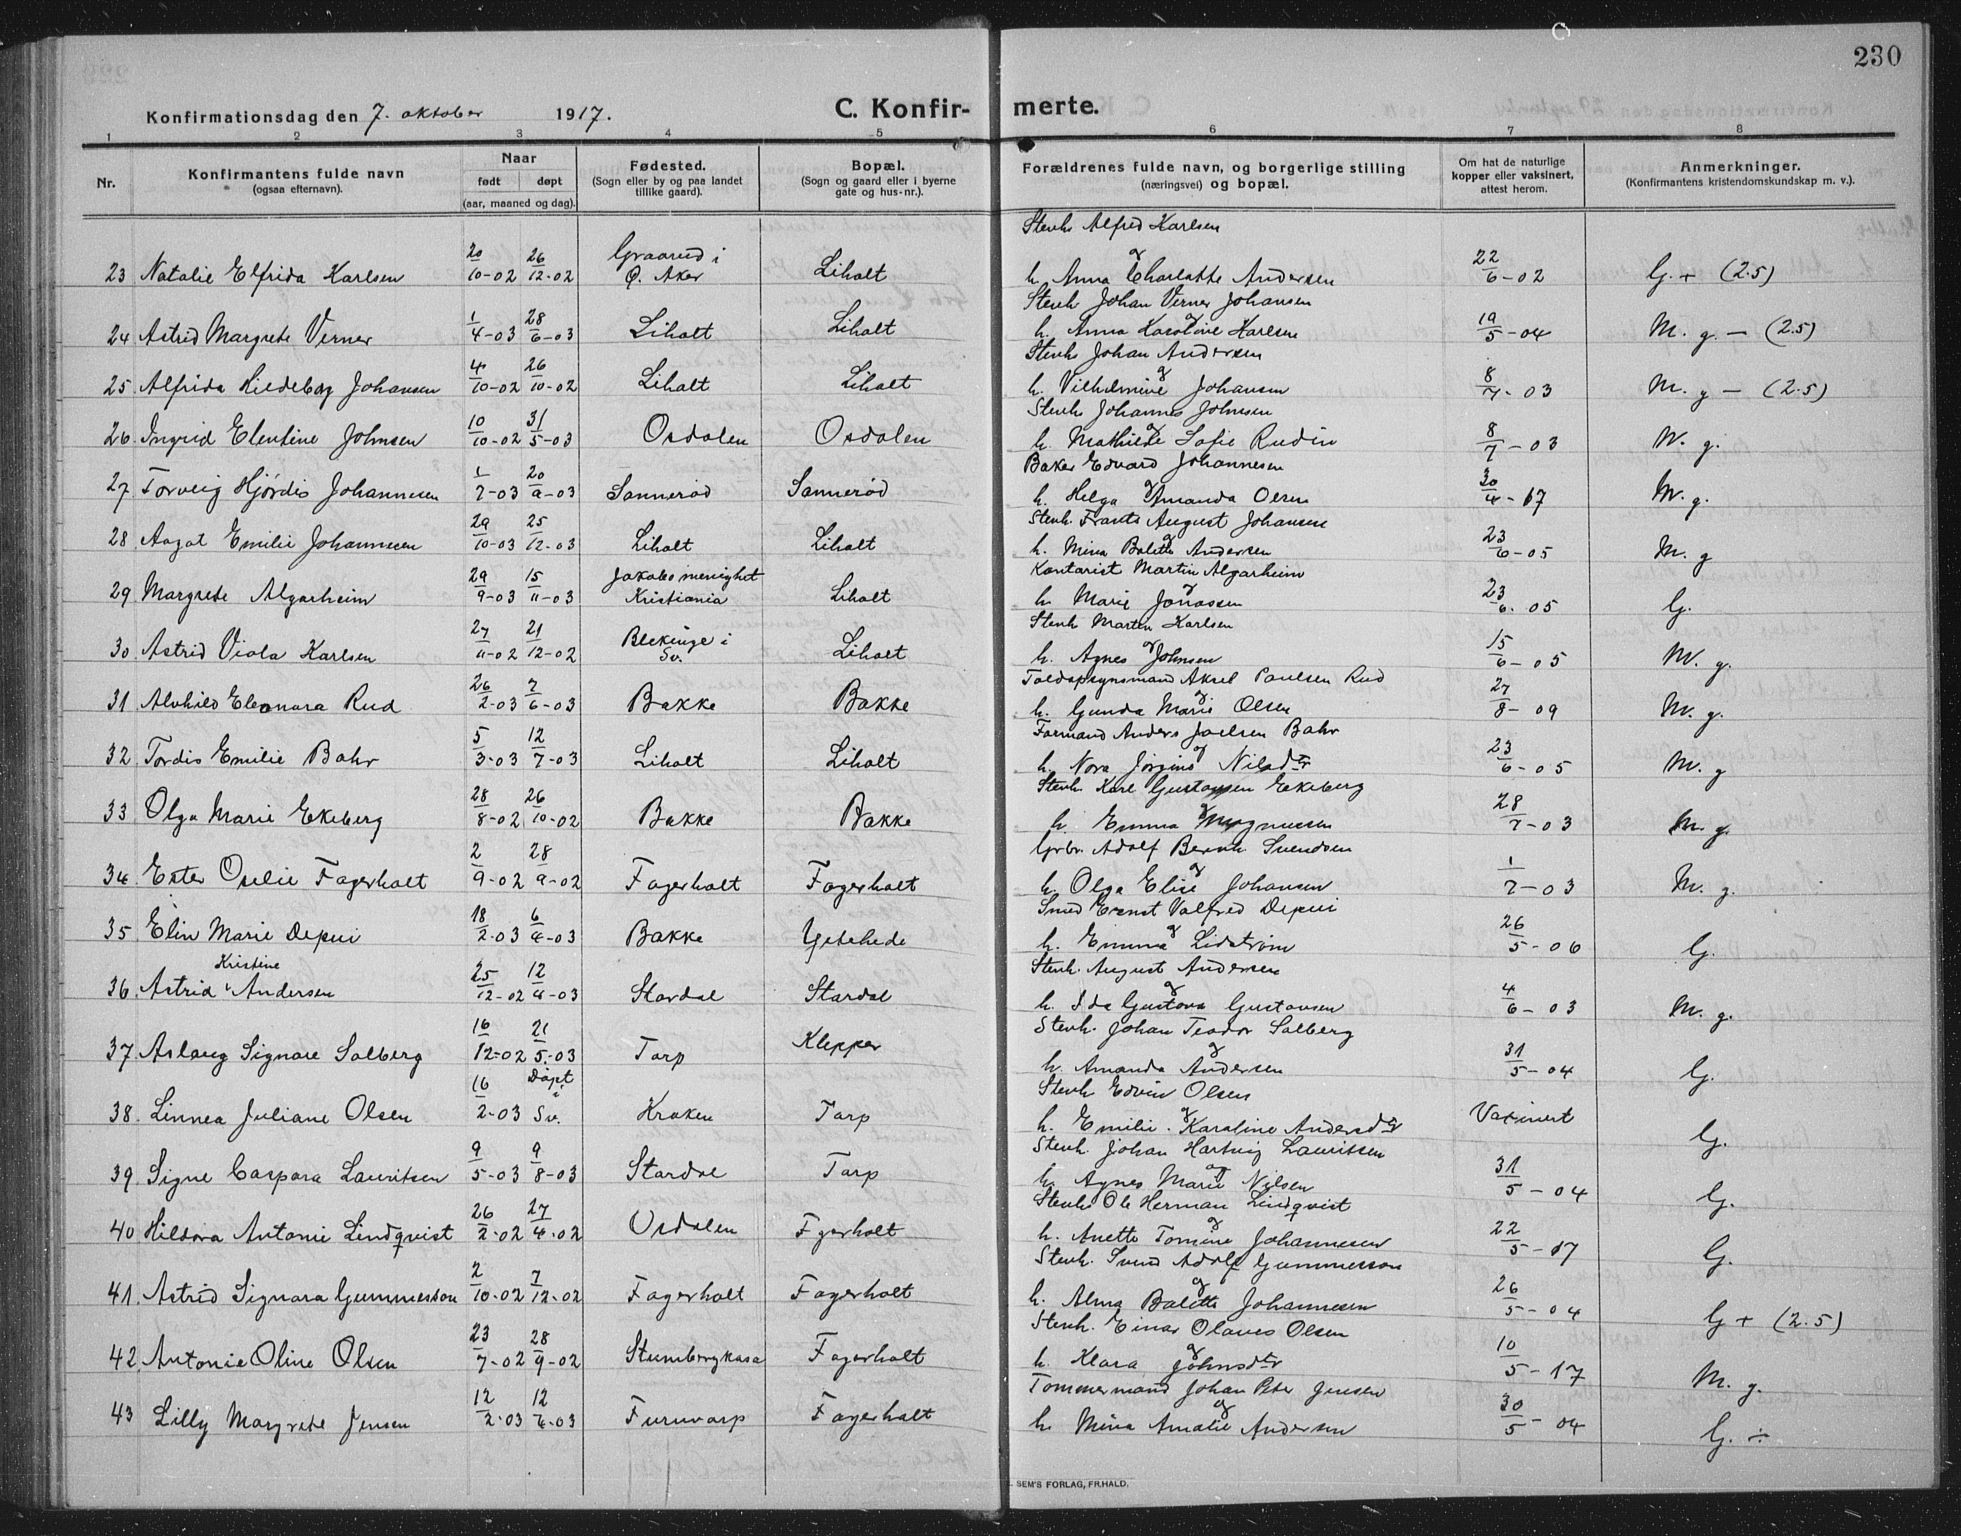 230
Konfirmationsdag den 7. oktober 1917.
C. Konfir- merte.
1 2 3 4 5 6 7 8
Nr.
Konfirmantens fulde navn
(ogsaa efternavn).
Naar
født døpt
(aar, maaned og dag).
Fødested.
(Sogn eller by og paa landet
tillike gaard).
Bopæl.
(Sogn og gaard eller i byerne
gate og hus-nr.).
Forældrenes fulde navn, og borgerlige stilling
(næringsvei) og bopæl.
Om hat de naturlige
kopper eller vaksinert,
attest herom.
Anmerkninger.
(Konfirmantens kristendomskundskap m. v.).
Stenh. Alfred Karlsen
23 Natalie Elfrida Karlsen 20/10-02 26/12-02 Graarud i Ø. Aker Liholt og h. Anna Charlotte Andersen 22/6-02 G. + (2.5)
Stenh. Johan Verner Johansen
24 Astrid Margrete Verner 1/4-03 28/6-03 Liholt Liholt og h. Anna Karoline Karlsen 19/5-04 M. g. — (2.5)
Stenh. Johan Andersen
25 Alfrida Hildeborg Johansen 4/10-02 26/10-02 Liholt Liholt og h. Vilhelmine Johansen 8/7-03 M. g — (2.5)
Stenh. Johannes Johnsen
26. Ingrid Elentine Johnsen 10/10-02 31/5-03 Osdalen Osdalen og h. Mathilde Sofie Rudin 8/7-03 M. g.
Baker Edvard Johannesen
27 Torveig Hjørdis Johannesen 1/7-03 20/9-03 Sannerød Sannerød og h. Helga Amanda Olsen 30/4-17 M. g.
Stenh. Frants August Johansen
28. Aagot Emilie Johannesen 29/10-03 25/12-03 Liholt Liholt og h. Mina Bolette Andersen 23/6-05 M. g
Kontorist Martin Algarheim
29 Margrete Algarheim 29/9-03 15/11-03 Jakobs menighet Kristiania Liholt og h. Marie Jonassen 23/6-05 G.
Stenh. Martin Karlsen
30. Astrid Viola Karlsen 27/11-02 21/12-02 Blekinge i Sv. Liholt og h. Agnes Johnsen 15/6-05 M. g.
Toldopsynsmand Aksel Paulsen Rud
31 Alvhild Eleonora Rud 26/2-03 7/6-03 Bakke Bakke og h. Gunda Marie Olsen 27/8-09 M. g.
Formand Anders Joelsen Bohr
32 Tordis Emilie Bohr 5/3-03 12/7-03 Liholt Liholt og h. Nora Jørgine Nilsdtr 23/6-05 M. g
Stenh. Karl Gustavsen Ekeberg
33 Olga Marie Ekeberg 28/8-02 26/10-02 Bakke Bakke og h. Emma Magnussen 28/7-03 M. g.
Grbr. Adolf Bernh. Svendsen
34. Ester Oselie Fagerholt 2/9-02 28/9-02 Fagerholt Fagerholt og h. Olga Elise Johansen 1/7-03 M. g.
Smed Ernst Valfred Depui
35 Elin Marie Depui 18/2-03 6/4-03 Bakke Ystehede og h. Emma Lidstrøm 26/5-06 G.
Stenh. August Andersen
36. Astrid Kristine Andersen 25/12-02 12/4-03 Stordal Stordal og h. Ida Gustava Gustavsen 4/6-03 M. g.
Stenh. Johan Teodor Solberg
37 Aslaug Signore Solberg 16/12-02 21/5-03 Torp Klepper og h. Amanda Andersen 31/5-04 G.
Stenh Edvin Olsen
38. Linnea Juliane Olsen 16/2-03 Døpt i Sv. Kroken Torp og h. Emilie Karoline Andersdtr Vaxinert G.
Stenh. Johan Hartvig Lauritsen
39. Signe Caspara Lauritsen 9/5-03 9/8-03 Stordal Torp og h. Agnes Marie Nilsen 31/5-04 G.
Stenh. Ole Herman Lindqvist
40 Hildora Antonie Lindqvist 26/2-02 27/4-02 Osdalen Fgerholt og h. Anette Tomine Johannesen 22/5-17 G.
Stenh. Svend Adolf Gummesson
41. Astrid Signora Gummesson 2/10-02 7/12-02 Fagerholt Fagerholt og h. Alma Bolette Johannesen 26/5-04 G + (2.5)
Stenh. Einar Olaves Olsen
42. Antonie Oline Olsen 23/7-02 28/9-02 Stumbergkasa Fagerholt og h. Klara Johnsdtr 10/5-17 M. g.
Tømmermand Johan Peter Jensen
43 Lilly Margrete Jensen 12/2-03 12/4-03 Furuvarp Fagerholt og h. Mina Amalie Andersen 30/5-04 G. ÷
SEM'S FORLAG, FR.HALD.